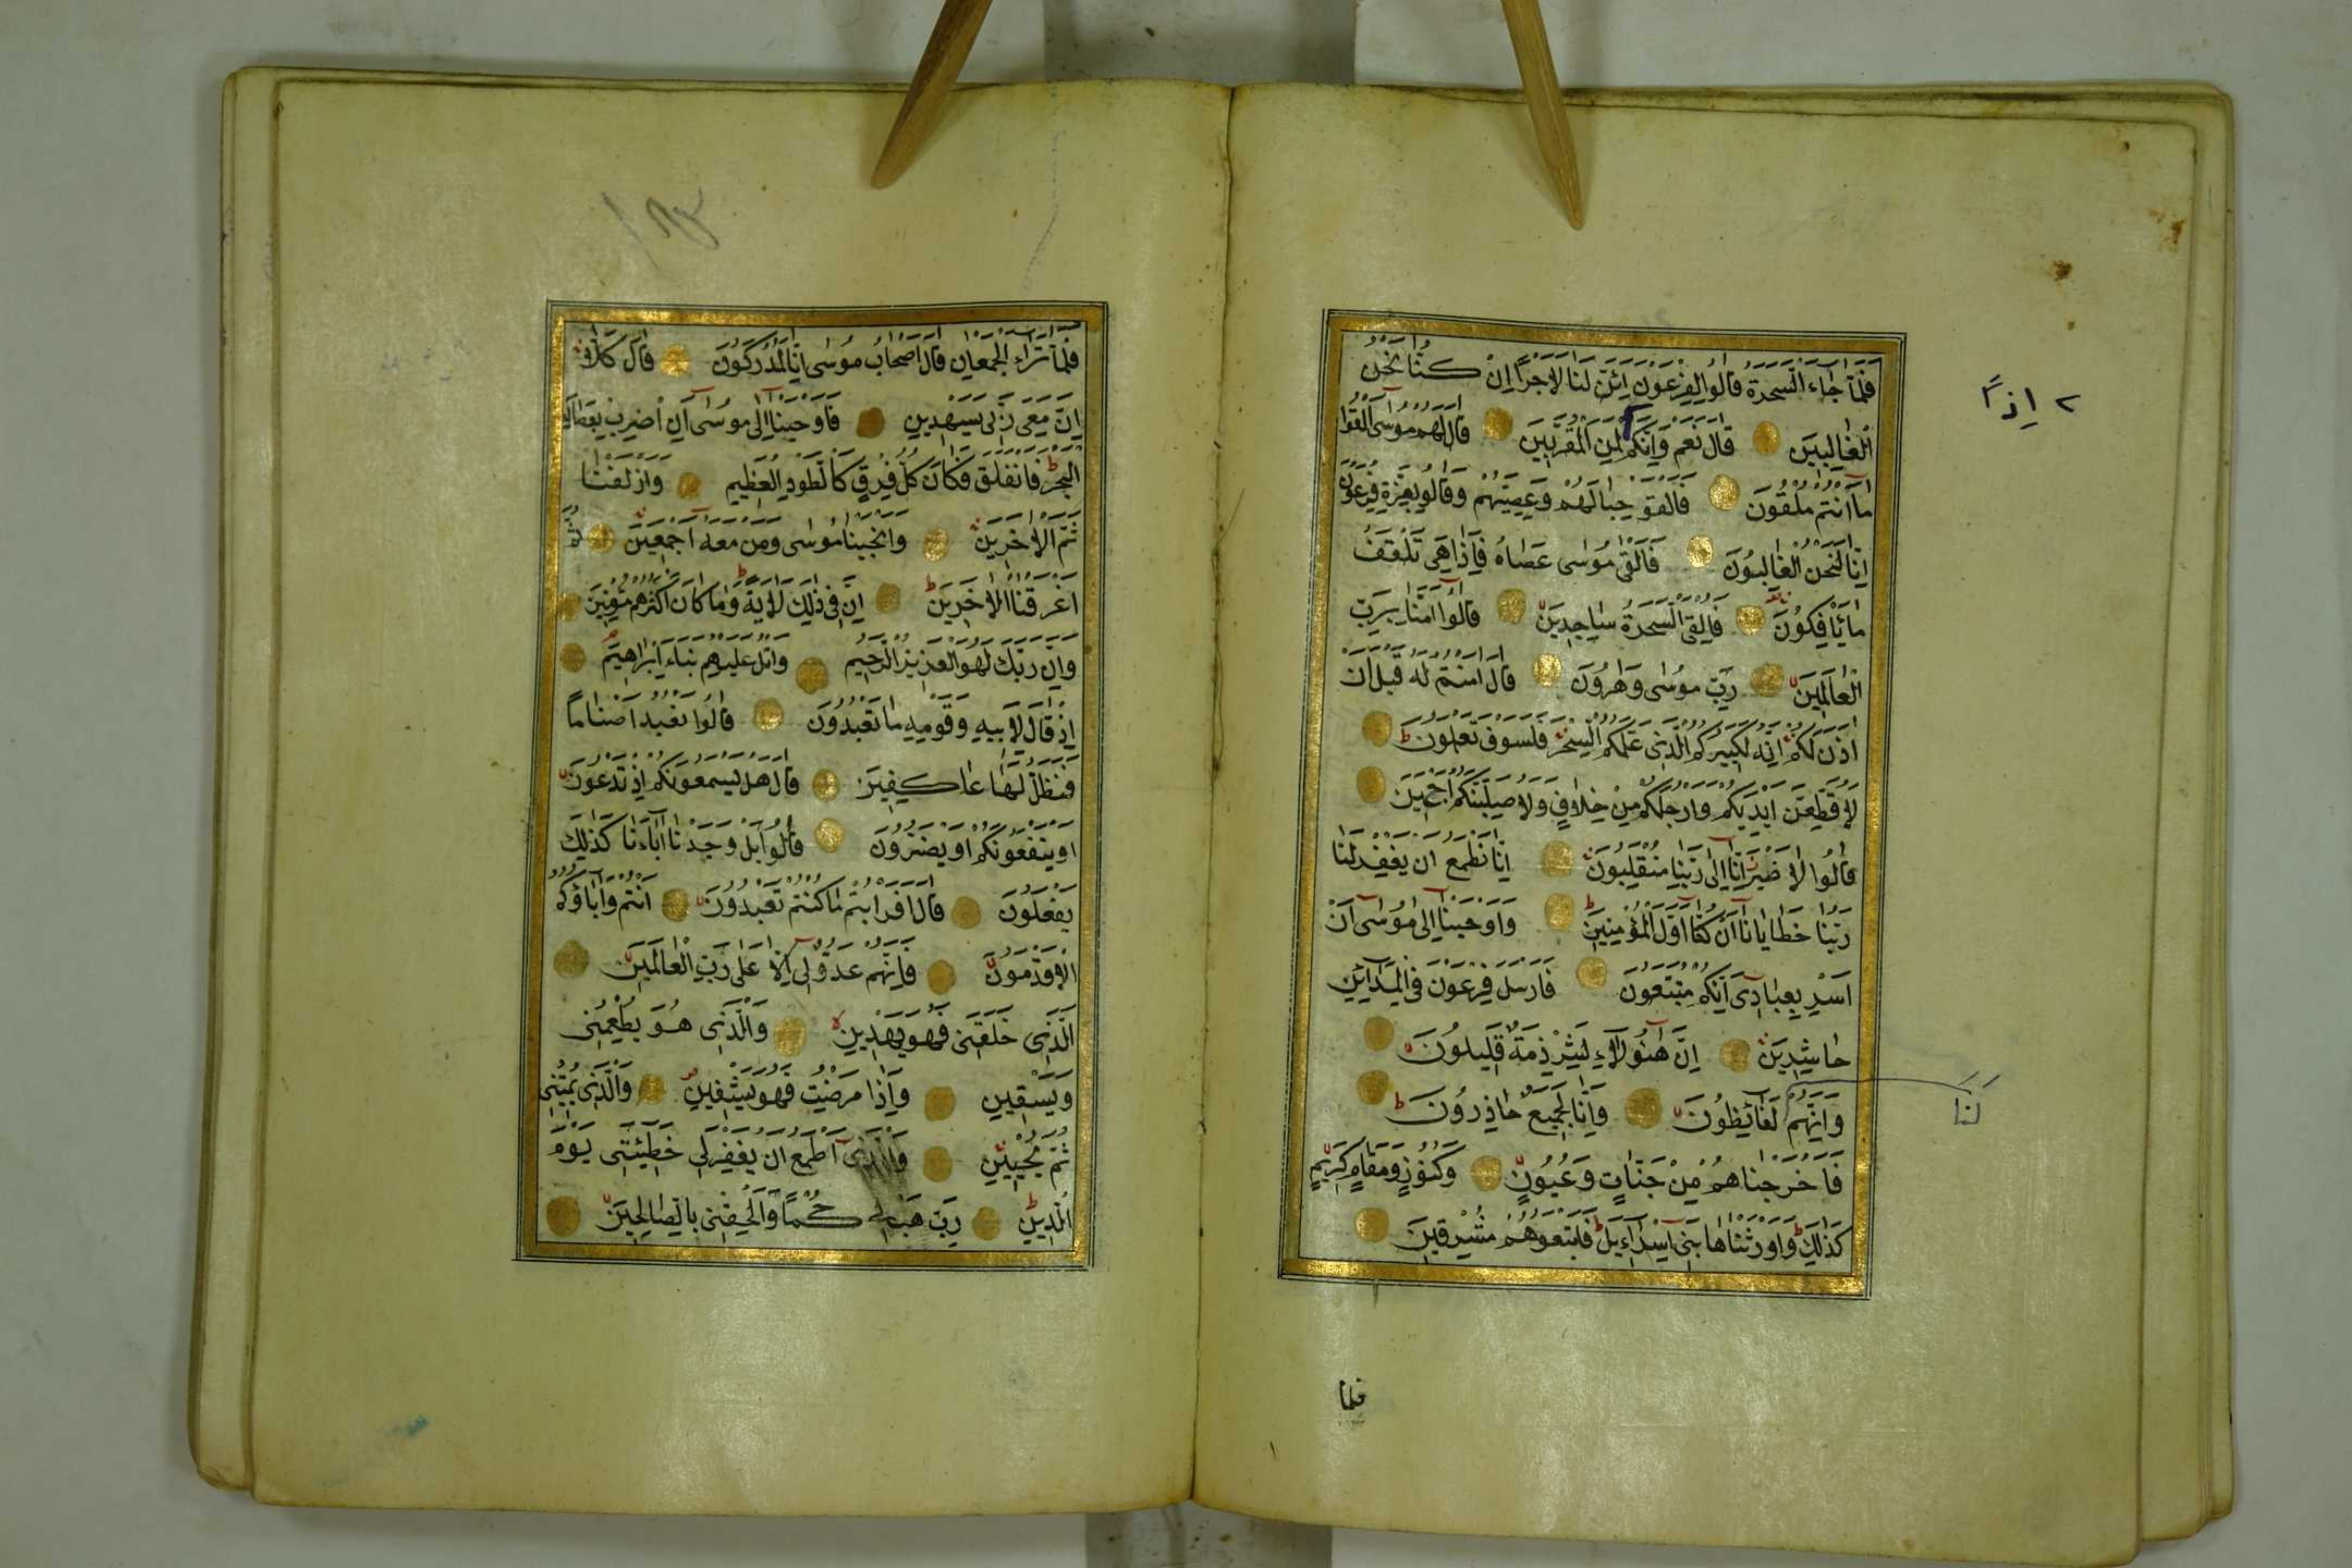 فلما جاء السحرة قالوا لفرعون ائن لنا لاجرا ان كنا نحن
الغالبين قال نعم وانكم لمن المقربين قال لهم موسى القوا
ما انتم ملقون فالقو حبالهم وعصيهم وقالو بعزة فرعون
انا لنحن الغالبون فالقى موسى عصاه فاذا هى تلقف
ما يأفكون فالقى السحرة ساجدين قالوا امنا برب
العالمين رب موسى وهرون قال امنتم له قبل ان
اذن لكم انه لكبيركم الذى علمكم السحر فلسوف تعلمون
لاقطعن ايديكم وارجلكم من خلاف ولاصلبنكم اجمعين
قالوا لا ضير انا الى ربنا منقلبون انا نطمع ان يغفر لنا
ربنا خطايانا ان كنا اول المؤمنين واوحينا الى موسى ان
اسر بعبادى انكم متبعون فارسل فرعون فى المدائن
حاشرين ان هؤلاء لشرذمة قليلون
وانهم لغائظون وانا لجميع حاذرون
فاخرجناهم من جنات وعيون وكنوز ومقام كريم
كذلك واورثناها بنى اسراءيل فاتبعوهم مشرقين
٢ اذاً
لنا
فلما
فلما تراء الجمعان قال اصحاب موسى انا لمدركون قال كلا
ان معى ربى سيهدين فاوحينا الى موسى ان اضرب بعصاك
البحر فانفلق فكان كل فرق كالطود العظيم وازلفنا
ثم الاخرين وانجينا موسى ومن معه اجمعين ثم
اغرقنا الاخرين ان فى ذلك لاية وما كان اكثرهم مؤمنين
وان ربك لهو العزيز الرحيم واتل عليهم نباء ابراهيم
اذ قال لابيه وقومه ما تعبدون قالوا نعبد اصناما
فنظل لها عاكفين قال هل يسمعونكم اذ تدعون
او ينفعونكم او يضرون قالوا بل وجدنا اباءنا كذلك
يفعلون قال افرايتم ما كنتم تعبدون انتم واباؤكم
الاقدمون فانهم عدو لى الا على رب العالمين
الذى خلقنى فهو يهدين والذى هو يطعمنى
ويسقين واذا مرضت فهو يشفين والذى يميتنى
ثم يحيين والذى اطمع ان يغفر لى خطيئتى يوم
الدين رب هب لى حكما والحقنى بالصالحين